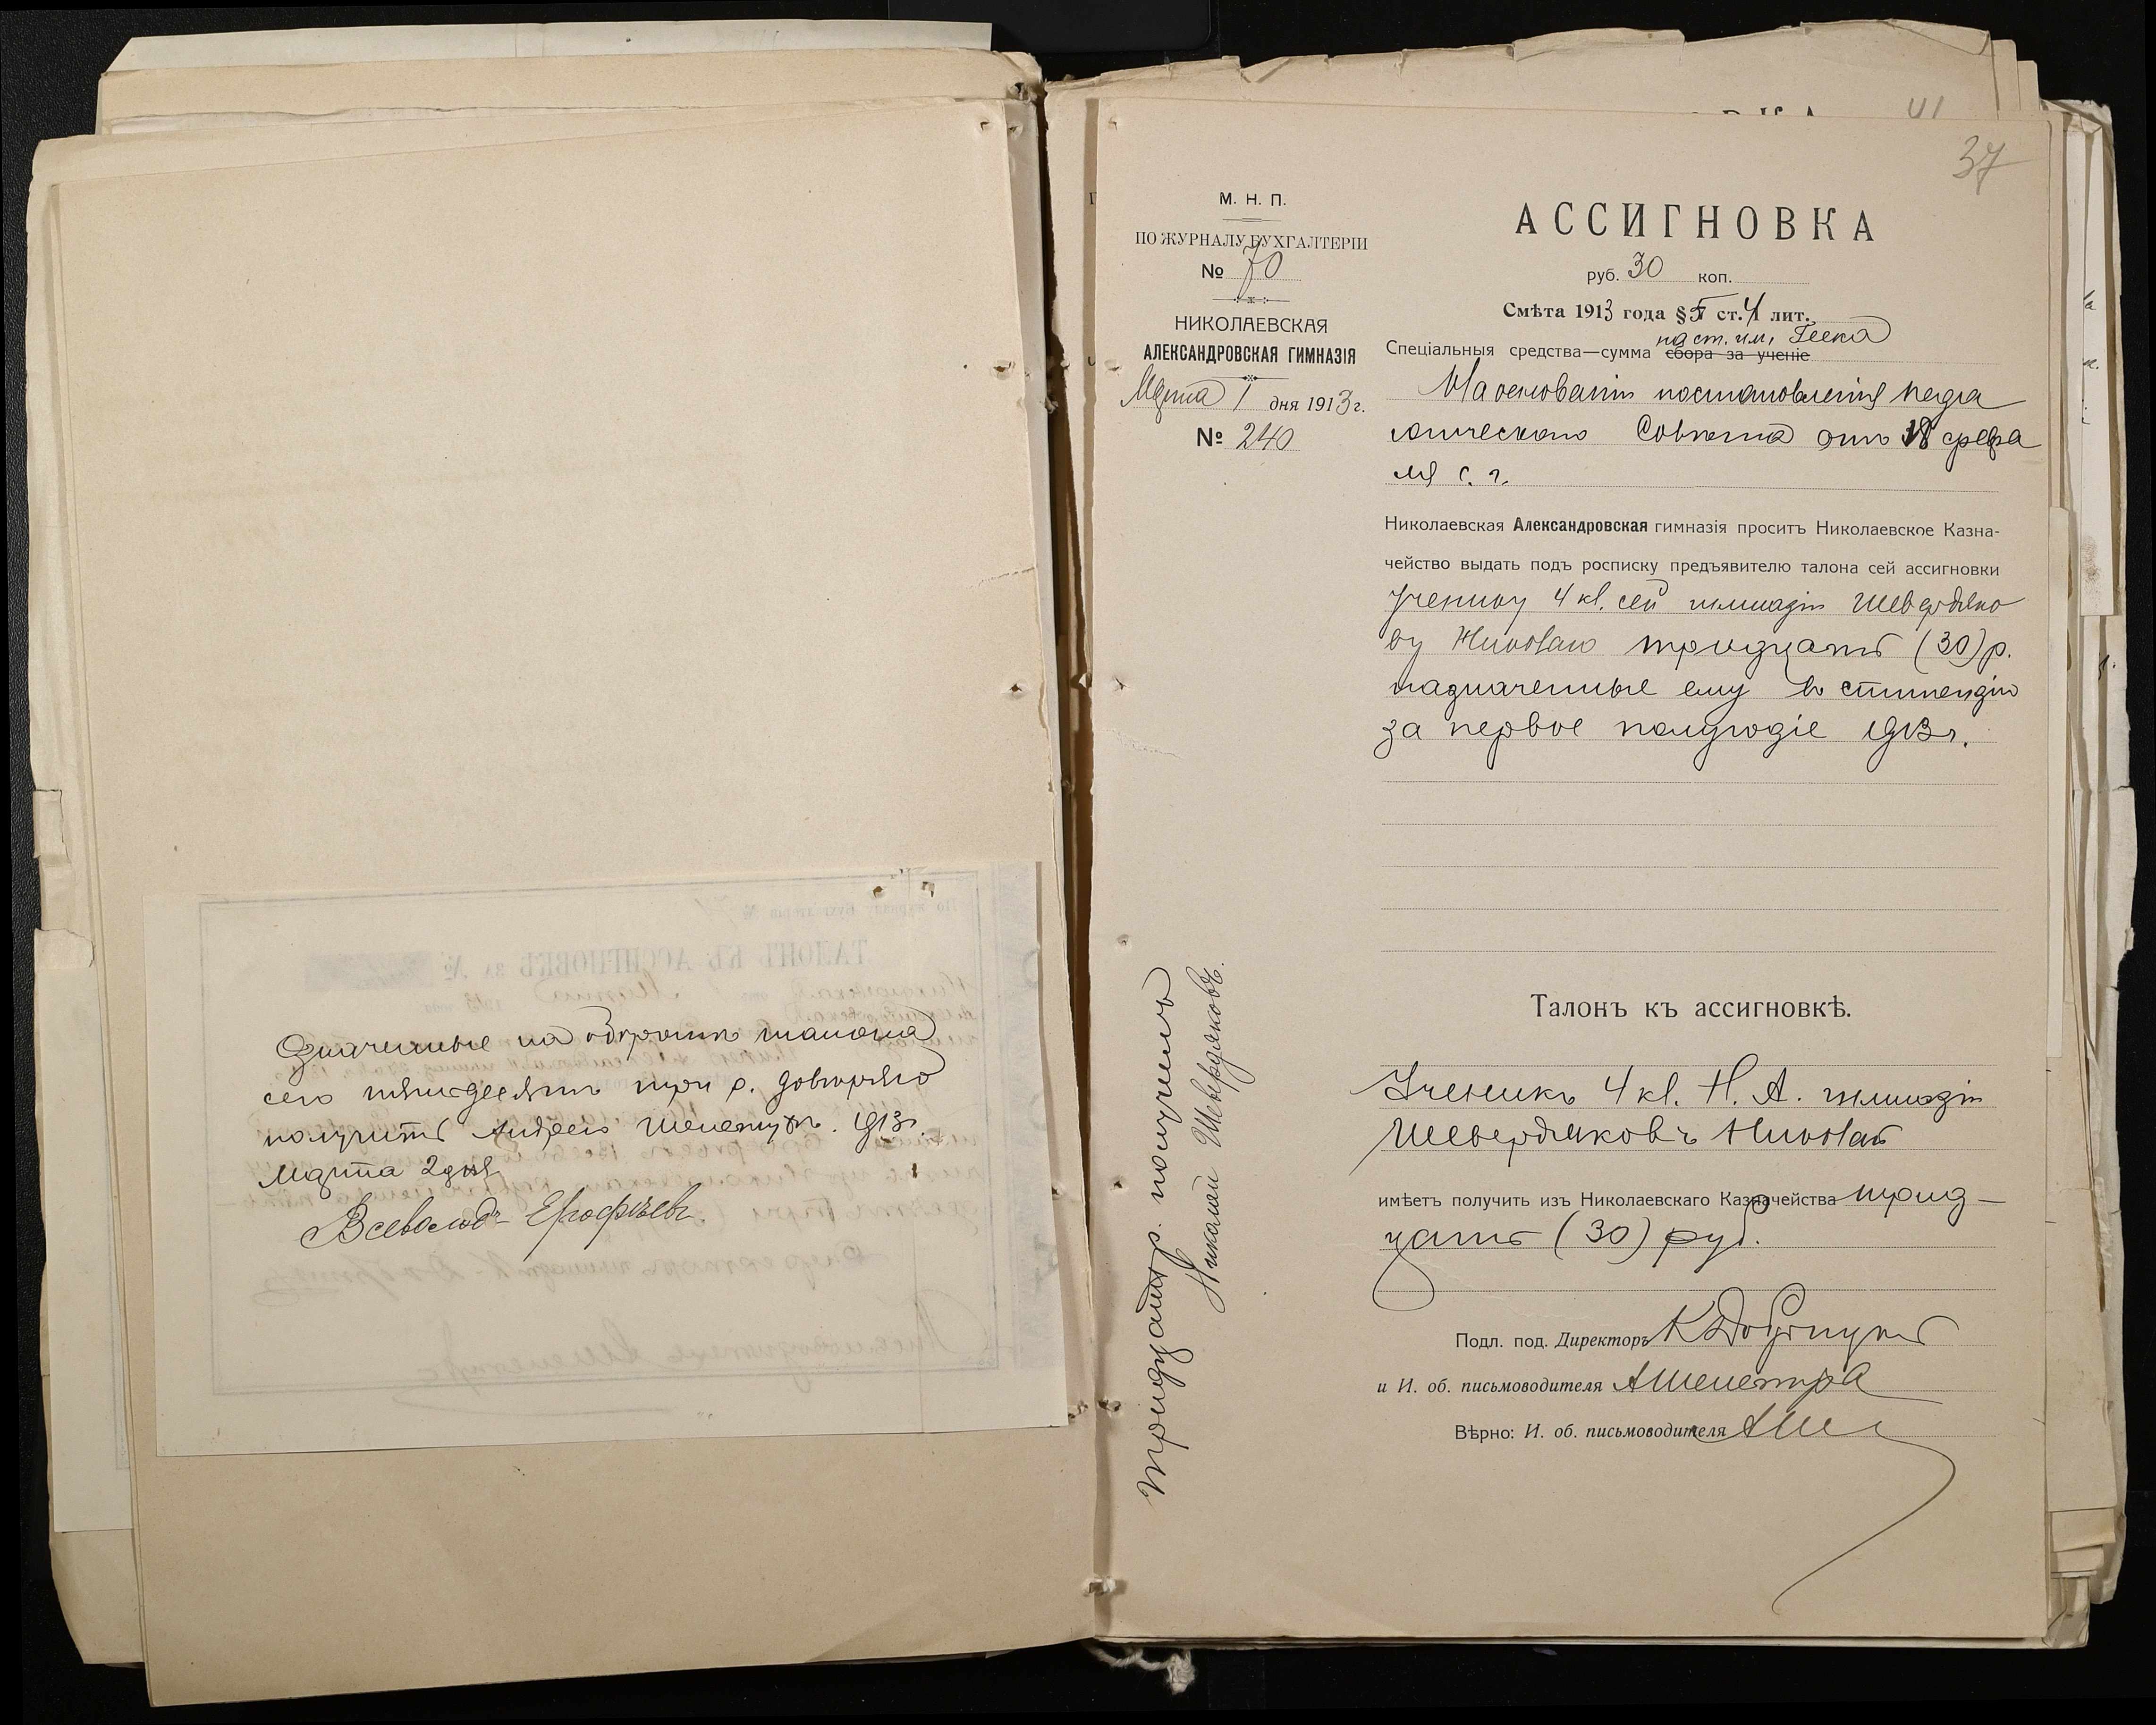 Означенные на обороте талона
сего пятьдесят три р. доверяю
получить Андрею Шелемухъ. 1913 г.
Марта 2 дня
Всеволодъ Ерофѣевъ
41
37
М. Н. П.
ПО ЖУРНАЛУ БУХГАЛТЕРІИ
№ 70
НИКОЛАЕВСКАЯ
АЛЕКСАНДРОВСКАЯ ГИМНАЗІЯ
Марта 1 дня 1913 г.
№ 240
АССИГНОВКА
руб. 30 коп.
Смѣта 1913 года § 5 ст. 4 лит.
на ст. им. Геека
Спеціальныя средства—сумма сбора за ученіе
На основаніи постановленія педа
гогическаго Совѣта отъ 18 февра
ля с. г.
Николаевская Александровская гимназія проситъ Николаевское Казна-
чейство выдать подъ росписку предъявителю талона сей ассигновки
Ученику 4 кл. сей гимназіи Шевердяко
ву Николаю тридцать (30) р.
назначенные ему въ стипендію
за первое полугодіе 1913 г.
Талонъ къ ассигновкѣ.
Ученикъ 4 кл. Н. А. гимназіи
Шевердяковъ Николай
имѣетъ получить изъ Николаевскаго Казначейства трид-
цать (30) руб.
Подл. под. Директоръ К
и И. об. письмоводителя А
Вѣрно: И. об. письмоводителя АШ
тридцать р. получилъ
Николай Шевердяковъ.